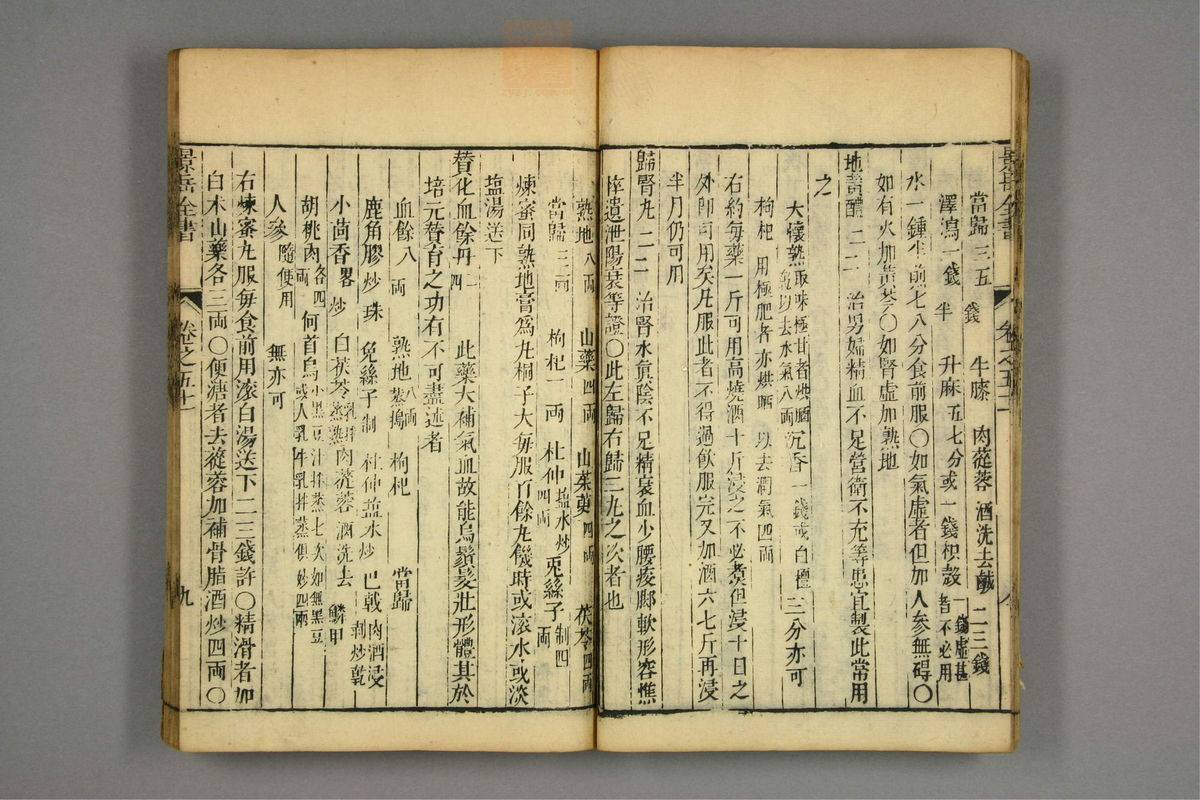 景岳全書 卷之五十一
當歸三五錢 牛膝 肉蓯蓉酒洗去鹹二三錢
澤瀉一錢半 升麻五七分或一錢枳殼一錢虛甚者不必用
水一鍾半煎七八分食前服○如氣虛者但加人參無碍○
如有火加黃芩○如腎虛加熟地
地黃醴二二 治男婦精血不足營衛不充等患宜製此常用
之
大懷熟取味極甘者烘晒乾以去水氣八兩沉香一錢或白檀三分亦可
枸杞用極肥者亦烘晒以去潤氣四兩
右約每藥一斤可用高燒酒十斤浸之不必煑但浸十日之
外即可用矣凡服此者不得過飲服完又加酒六七斤再浸
半月仍可用
歸腎丸二二 治腎水眞陰不足精衰血少腰痠脚軟形容憔
悴遺泄陽衰等證○此左歸右歸二丸之次者也
熟地八兩 山藥四兩 山茱萸四兩 茯苓四兩
當歸三兩 枸杞一兩 杜仲盐水炒四兩 兎絲子製四兩
煉蜜同熟地膏爲丸桐子大每服百餘丸饑時或滚水或淡
盐湯送下
賛化血餘丹二四 此藥大補氣血故能烏鬚髮壯形體其於
培元賛育之功有不可盡述者
血餘八兩 熟地八兩蒸搗 枸杞 當歸
鹿角膠炒珠 兎絲子制 杜仲盐水炒 巴戟肉酒浸剥炒乾
小茴香畧炒 白茯苓乳拌蒸熟 肉蓯蓉酒洗去鱗甲
胡桃肉各四兩 何首烏小黑豆汁拌蒸七次如無黑豆或人乳牛乳拌蒸俱妙四兩
人參隨便用無亦可
右煉蜜丸服每食前用滚白湯送下二三錢許○精滑者加
白术山藥各三兩○便溏者去蓯蓉加補骨脂酒炒四兩○
景岳全書 卷之五十一 九